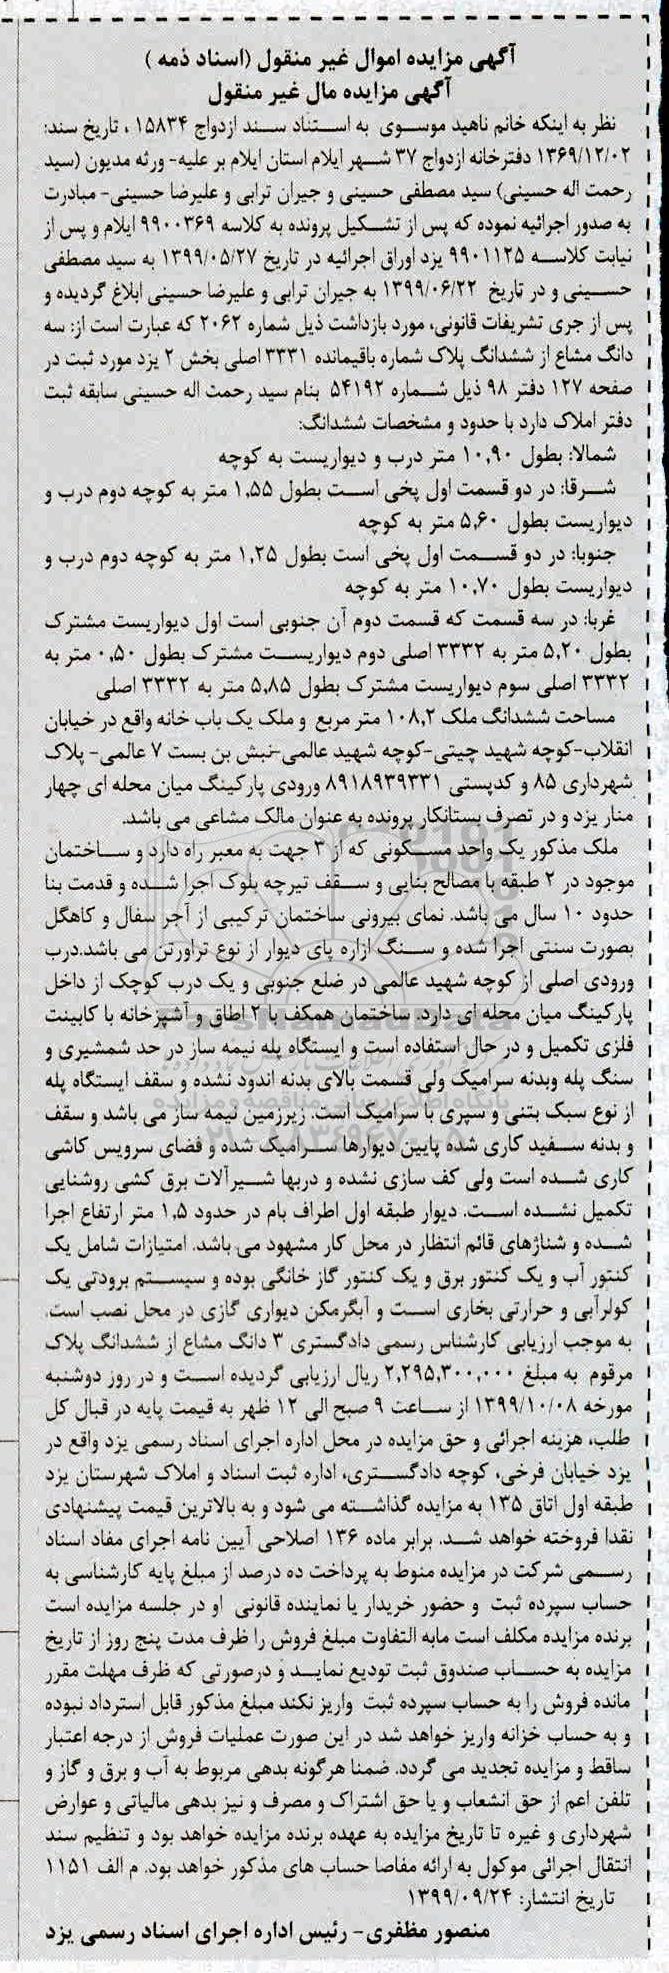 آگهی مزایده اموال غیر منقول (اسناد ذمه )
آگهی مزایده مال غیر منقول
نظر به اینکه خانم ناهید موسوی به استناد سند ازدواج ۱۵۸۳۴ ، تاریخ سند:
۱۳۶۹/۱۲/۰۲ دفترخانه ازدواج ۳۷ شهر ایلام استان ایلام بر علیه- ورثه مدیون (سید
رحمت اله حسینی) سید مصطفی حسینی و جیران ترابی و علیرضا حسینی- مبادرت
به صدور اجرائیه نموده که پس از تشکیل پرونده به کلاسه ۹۹۰۰۳۶۹ ایلام و پس از
نیابت کلاسه ۹۹۰۱۱۲۵ یزد اوراق اجرائیه در تاریخ ۱۳۹۹/۰۵/۲۷ به سید مصطفی
حسینی و در تاریخ ۱۳۹۹/۰۶/۲۲ به جیران ترابی و علیرضا حسینی ابلاغ گردیده و
پس از جری تشریفات قانونی، مورد بازداشت ذیل شماره ۲۰۶۲ که عبارت است از: سه
دانگ مشاع از ششدانگ پلاک شماره باقیمانده ۳۳۳۱ اصلی بخش ۲ یزد مورد ثبت در
صفحه ۱۲۷ دفتر ۹۸ ذیل شماره ۵۴۱۹۲ بنام سید رحمت اله حسینی سابقه ثبت
دفتر املاک دارد با حدود و مشخصات ششدانگ:
شمالا: بطول ۱۰,۹۰ متر درب و دیواریست به کوچه
شرقا: در دو قسمت اول پخی است بطول ۱,۵۵ متر به کوچه دوم درب و
دیواریست بطول ۵,۶۰ متر به کوچه
جنوبا: در دو قسمت اول پخی است بطول ۱,۲۵ متر به کوچه دوم درب و
دیواریست بطول ۱۰,۷۰ متر به کوچه
غربا: در سه قسمت که قسمت دوم آن جنوبی است اول دیواریست مشترک
بطول ۵,۲۰ متر به ۳۳۳۲ اصلی دوم دیواریست مشترک بطول ۰,۵۰ متر به
۳۳۳۲ اصلی سوم دیواریست مشترک بطول ۵,۸۵ متر به ۳۳۳۲ اصلی
مساحت ششدانگ ملک ۱۰۸,۲ متر مربع و ملک یک باب خانه واقع در خیابان
انقلاب-کوچه شهید چیتی-کوچه شهید عالمی-نبش بن بست ۷ عالمی- پلاک
شهرداری ۸۵ و کدپستی ۸۹۱۸۹۳۹۳۳۱ ورودی پارکینگ میان محله ای چهار
منار یزد و در تصرف بستانکار پرونده به عنوان مالک مشاعی می باشد.
ملک مذکور یک واحد مسکونی که از ۳ جهت به معبر راه دارد و ساختمان
موجود در ۲ طبقه با مصالح بنایی و سقف تیرچه بلوک اجرا شده و قدمت بنا
حدود ۱۰ سال می باشد. نمای بیرونی ساختمان ترکیبی از آجر سفال و کاهگل
بصورت سنتی اجرا شده و سنگ ازاره پای دیوار از نوع تراورتن می باشد.درب
ورودی اصلی از کوچه شهید عالمی در ضلع جنوبی و یک درب کوچک از داخل
پارکینگ میان محله ای دارد. ساختمان همکف با ۲ اطاق و آشپزخانه با کابینت
فلزی تکمیل و در حال استفاده است و ایستگاه پله نیمه ساز در حد شمشیری و
سنگ پله وبدنه سرامیک ولی قسمت بالای بدنه اندود نشده و سقف ایستگاه پله
از نوع سبک بتنی و سپری با سرامیک است. زیرزمین نیمه ساز می باشد و سقف
و بدنه سفید کاری شده پایین دیوارها سرامیک شده و فضای سرویس کاشی
کاری شده است ولی کف سازی نشده و دربها شیرآلات برق کشی روشنایی
تکمیل نشده است. دیوار طبقه اول اطراف بام در حدود ۱,۵ متر ارتفاع اجرا
شده و شناژهای قائم انتظار در محل کار مشهود می باشد. امتیازات شامل یک
کنتور آب و یک کنتور برق و یک کنتور گاز خانگی بوده و سیستم برودتی یک
کولرآبی و حرارتی بخاری است و آبگرمکن دیواری گازی در محل نصب است.
به موجب ارزیابی کارشناس رسمی دادگستری ۳ دانگ مشاع از ششدانگ پلاک
مرقوم به مبلغ ۲,۲۹۵,۳۰۰,۰۰۰ ریال ارزیابی گردیده است و در روز دوشنبه
مورخه ۱۳۹۹/۱۰/۰۸ از ساعت ۹ صبح الی ۱۲ ظهر به قیمت پایه در قبال کل
طلب، هزینه اجرائی و حق مزایده در محل اداره اجرای اسناد رسمی یزد واقع در
یزد خیابان فرخی، کوچه دادگستری، اداره ثبت اسناد و املاک شهرستان یزد
طبقه اول اتاق ۱۳۵ به مزایده گذاشته می شود و به بالاترین قیمت پیشنهادی
نقدا فروخته خواهد شد. برابر ماده ۱۳۶ اصلاحی آیین نامه اجرای مفاد اسناد
رسمی شرکت در مزایده منوط به پرداخت ده درصد از مبلغ پایه کارشناسی به
حساب سپرده ثبت و حضور خریدار یا نماینده قانونی او در جلسه مزایده است
برنده مزایده مکلف است مابه التفاوت مبلغ فروش را ظرف مدت پنج روز از تاریخ
مزایده به حساب صندوق ثبت تودیع نماید و درصورتی که ظرف مهلت مقرر
مانده فروش را به حساب سپرده ثبت واریز نکند مبلغ مذکور قابل استرداد نبوده
و به حساب خزانه واریز خواهد شد در این صورت عملیات فروش از درجه اعتبار
ساقط و مزایده تجدید می گردد. ضمنا هرگونه بدهی مربوط به آب و برق و گاز و
تلفن اعم از حق انشعاب و یا حق اشتراک و مصرف و نیز بدهی مالیاتی و عوارض
شهرداری و غیره تا تاریخ مزایده به عهده برنده مزایده خواهد بود و تنظیم سند
انتقال اجرائی موکول به ارائه مفاصا حساب های مذکور خواهد بود. م الف ۱۱۵۱
تاریخ انتشار: ۱۳۹۹/۰۹/۲۴
منصور مظفری- رئیس اداره اجرای اسناد رسمی یزد